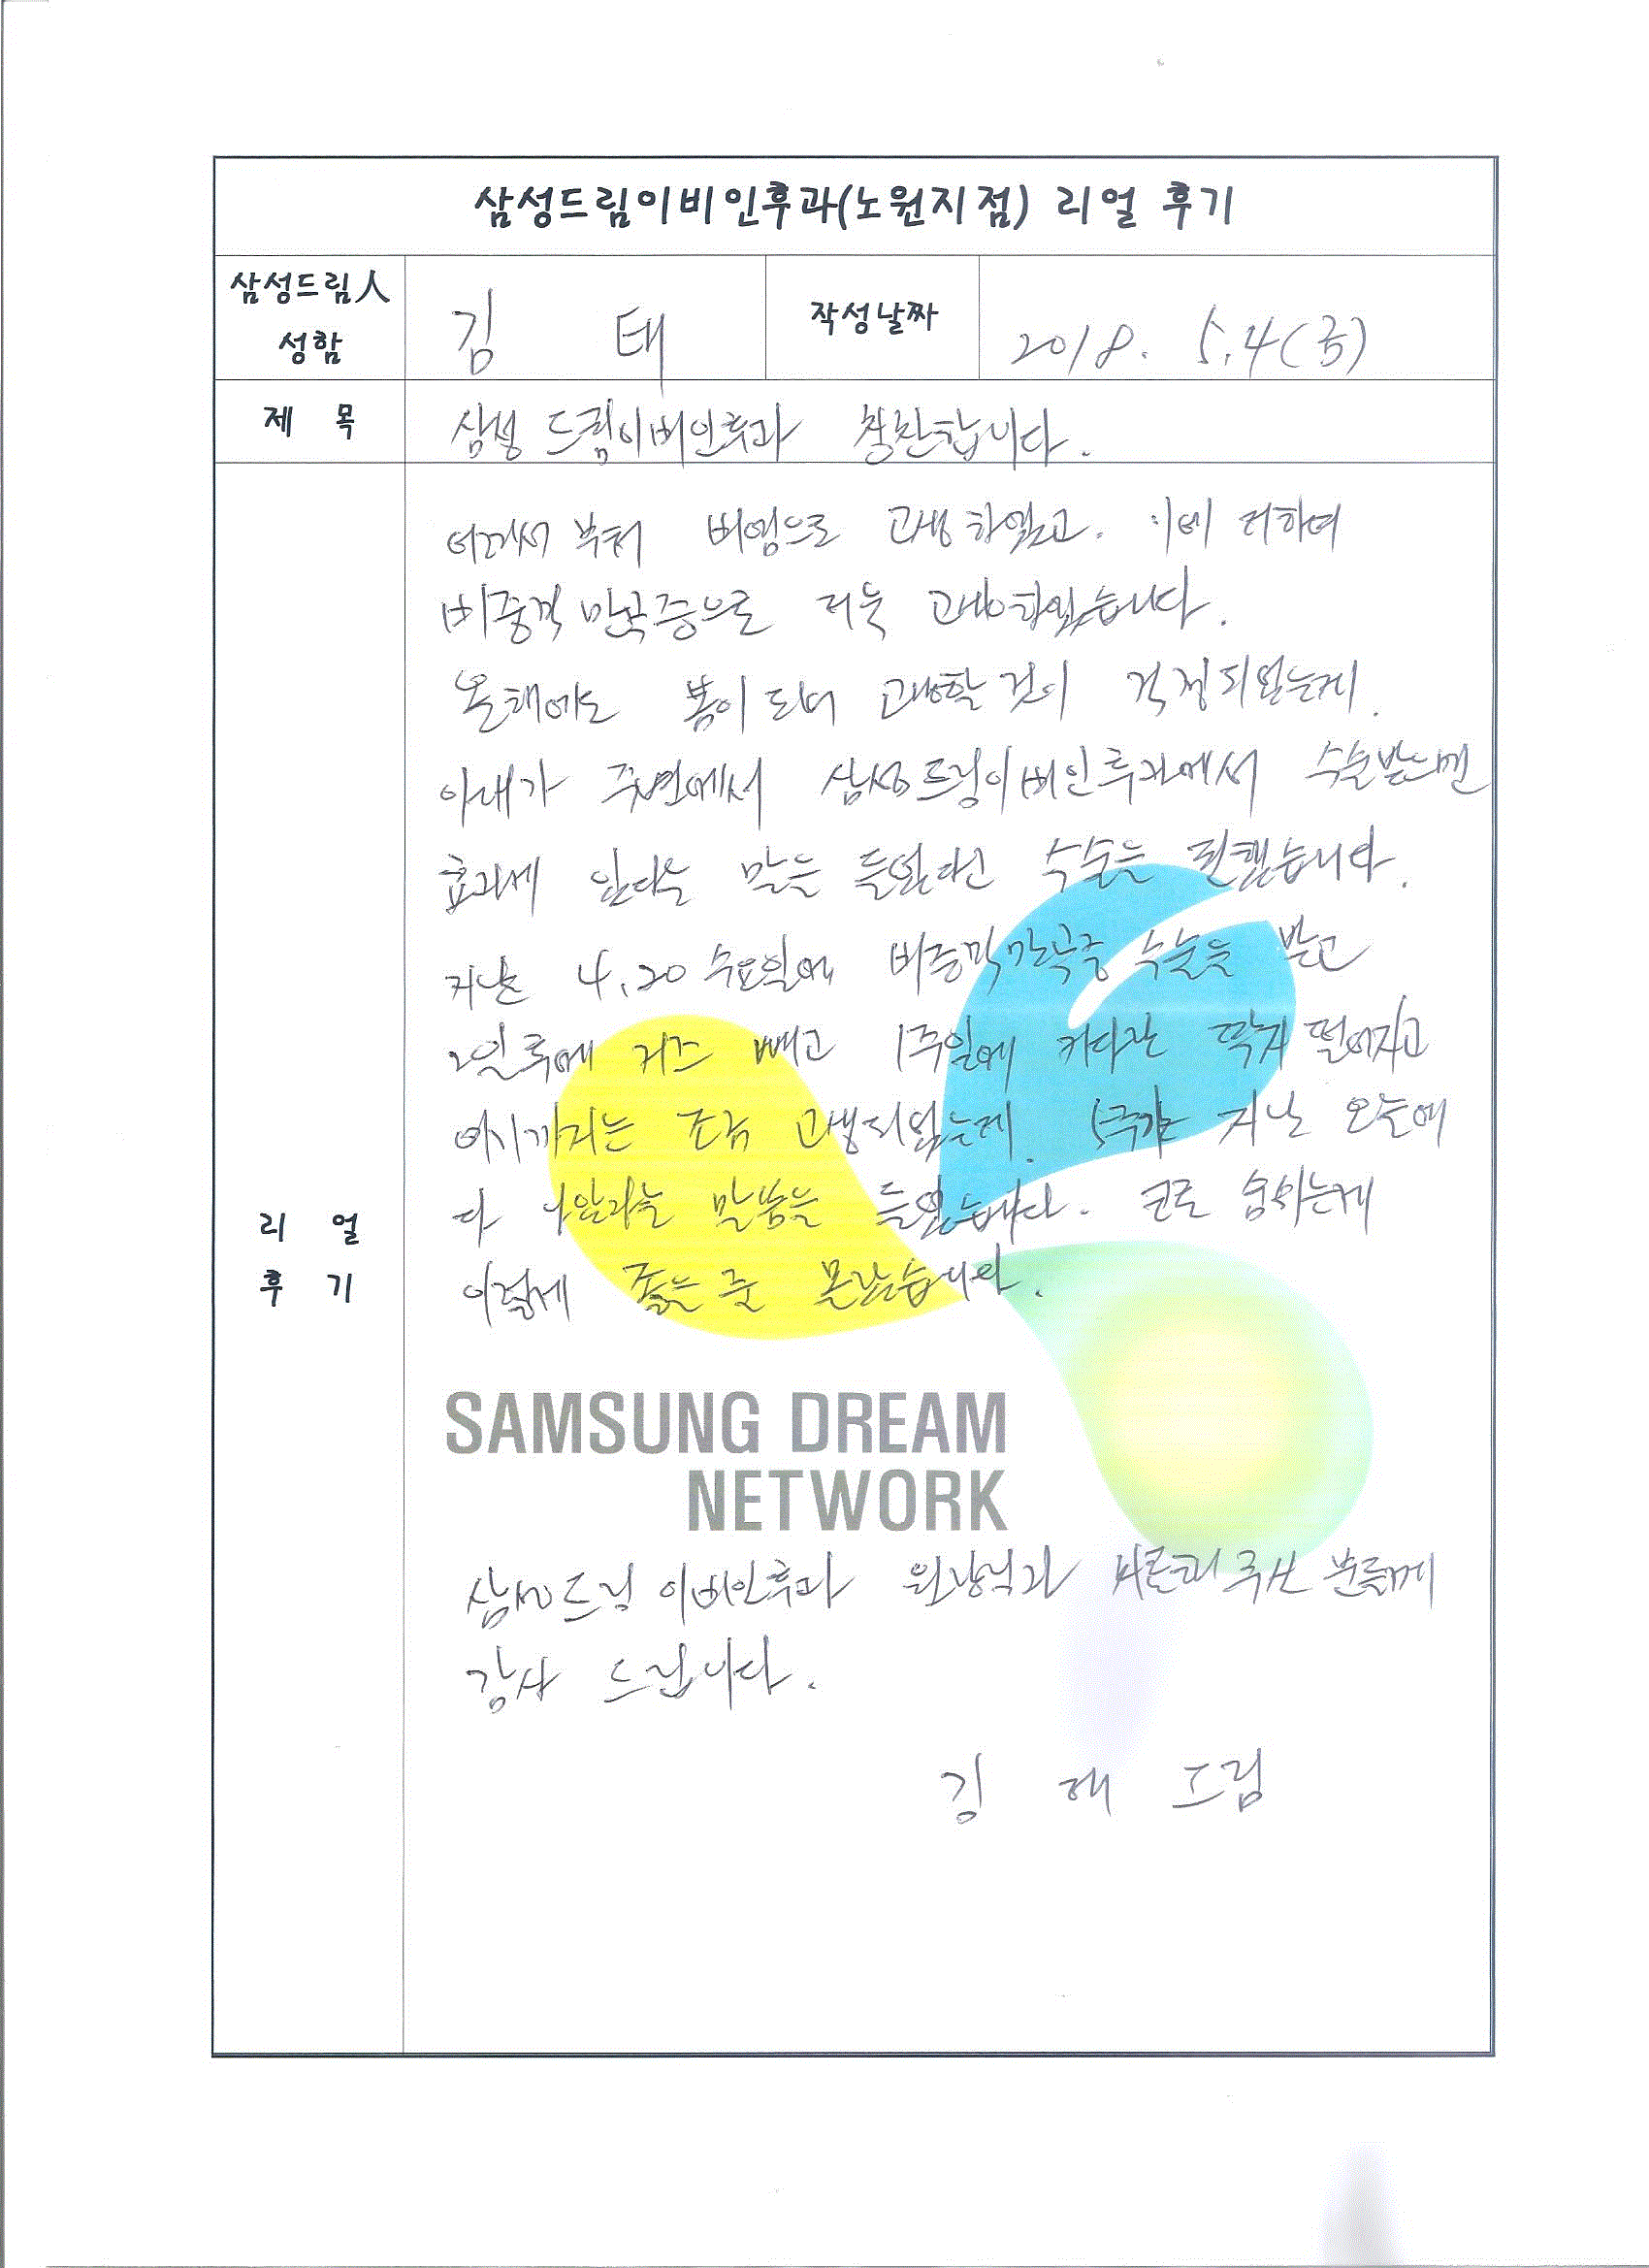 삼성드림이비인후과(노원지점) 리얼 후기
삼성드림人 성함 김 태 작성날짜 2018. 5.4(금)
제 목 삼성 드림이비인후과 칭찬합니다.
어려서 부터 비염으로 고생하였고. 이에 더하여
비중격 만곡증으로 더욱 고생하였습니다.
올해에도 봄이 되며 고생할 것이 걱정되었는데.
아내가 주변에서 삼성드림이비인후과에서 수술받으면
효과에 있다는 말을 들었다면 수술을 했습니다.
지난 4.20 수요일에 비중격만곡증 수술을 받고
2일후에 거즈 빼고 1주일에 커다란 딱지 떨어지고
여기까지는 조금 고생되었는데. 지난 오늘에
다 나았다는 말씀을 들었습니다. 코로 숨쉬는게
이렇게 좋은 줄 몰랐습니다.
리 얼
후 기
SAMSUNG DREAM
NETWORK
삼성드림 이비인후과 원장님과 분들께
감사 드립니다.
김 태 드림